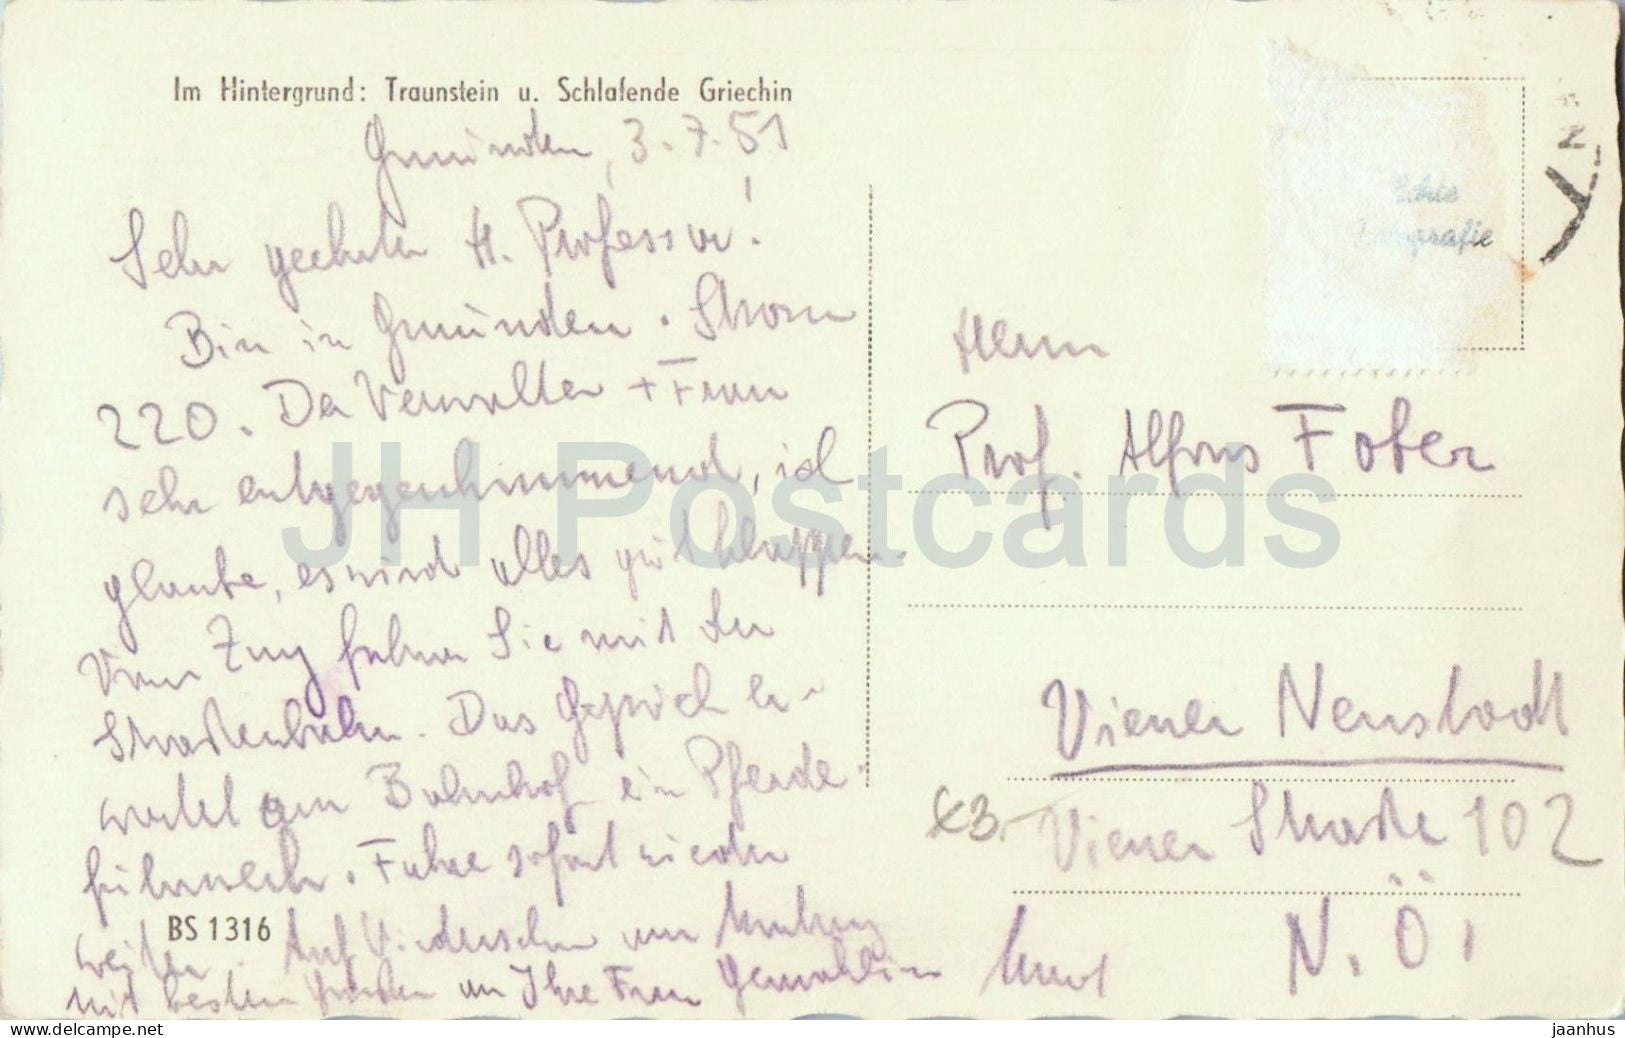 Im Hintergrund: Traunstein u. Schlafende Griechin
Gmünden, 3.7.51
Sehr geehrter H. Professor!
Bin in Gmünden.
220. Der Verwalter + Frau
sehr entgegenkommend, ich
glaube, es wird alles gut klappen.
Vom Zug fahren Sie mit der
Straßenbahn. Das Gepäck er-
wartet am Bahnhof ein Pferde-
fuhrwerk. Fahre sofort wieder
weiter. Auf Wiedersehen
mit besten Grüßen an Ihre Frau Gemahlin
BS 1316
Echte
Fotografie
Herrn
Prof. Alfons Fober
Wiener Neustadt
Wiener Straße 102
N.Ö.
JH Postcards
delcampe.net
jaanhus